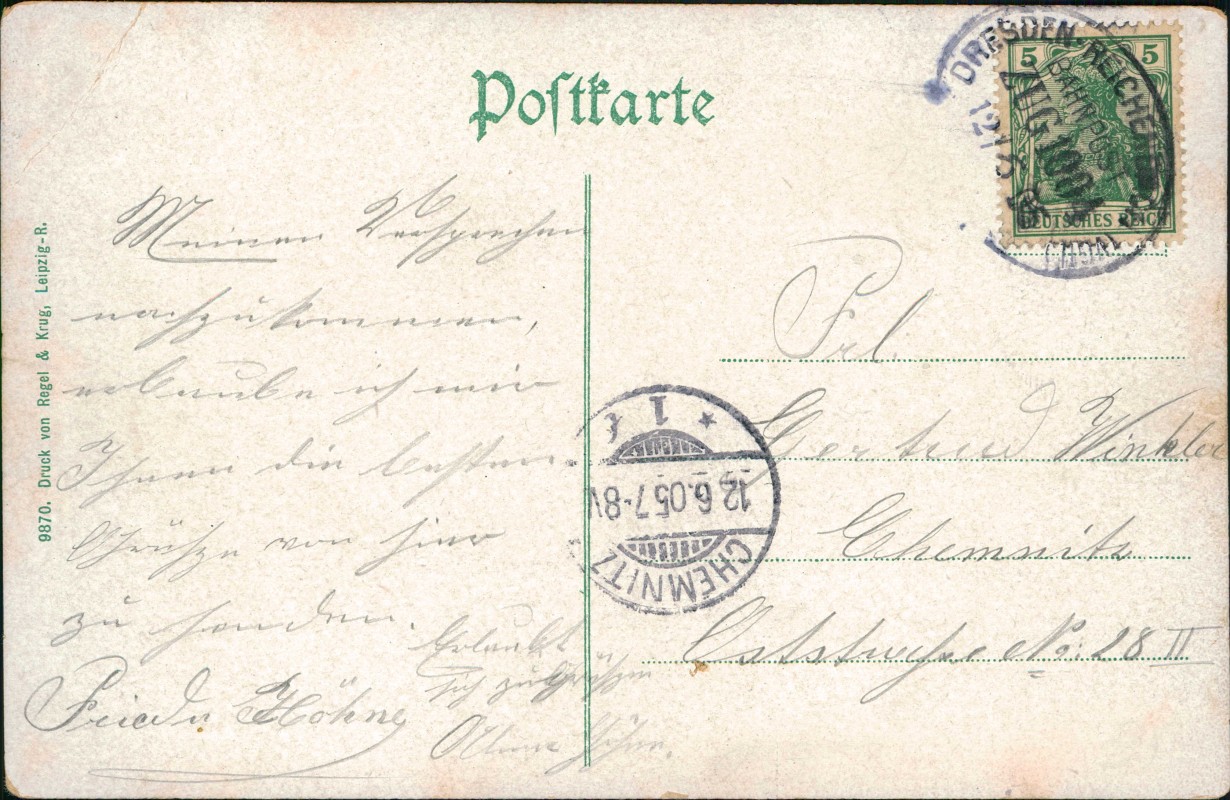 Postkarte
DRESDEN-REICHE
BAHNPOST
ZUG 100
12 6
5 5
DEUTSCHES REICH
9870. Druck von Regel & Krug, Leipzig-R.
Meinem Versprechen
nachzukommen,
erlaube ich mir
Ihnen die besten
Grüße von hier
zu senden.
Frieda Höhne
Erlaubt
sich zu Grüßen
Höhne.
Frl.
Gertrud Winkler
Chemnitz
Oststraße No: 28 II
CHEMNITZ
12.6.05.7-8V
* 1